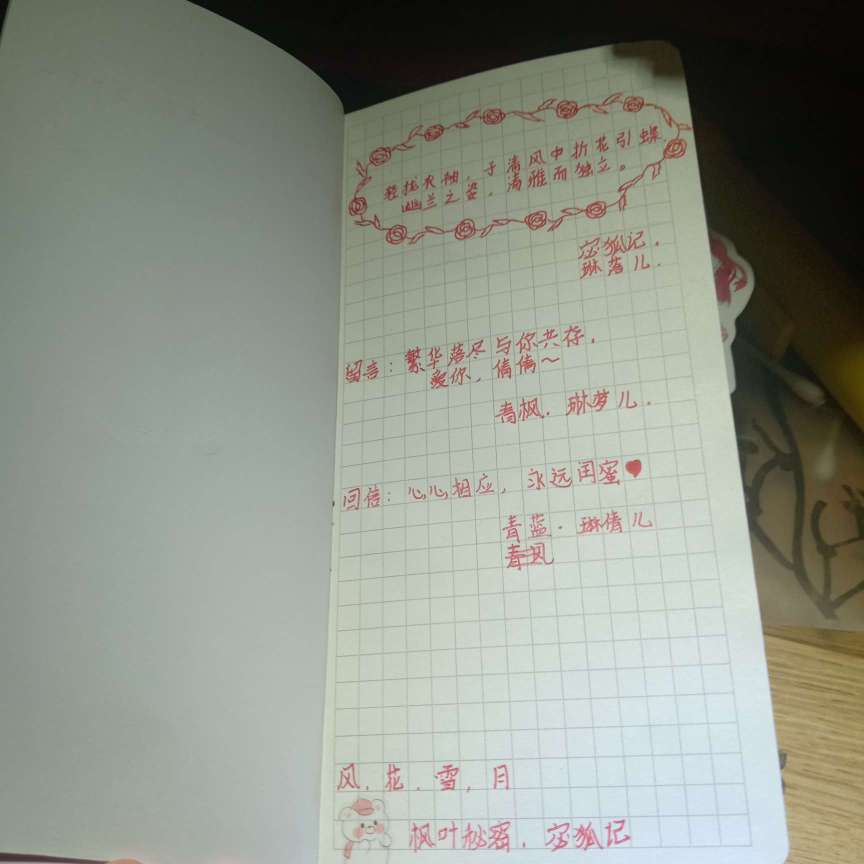 轻拢衣袖，于清风中折花引蝶
幽兰之姿，清雅而独立。
宓狐记．
琳落儿．
留言：繁华落尽与你共存．
爱你，倩倩～
青枫．琳梦儿．
回信：心心相应，永远闺蜜♥
青蓝．琳倩儿
青风
风．花．雪．月
枫叶秘密．宓狐记